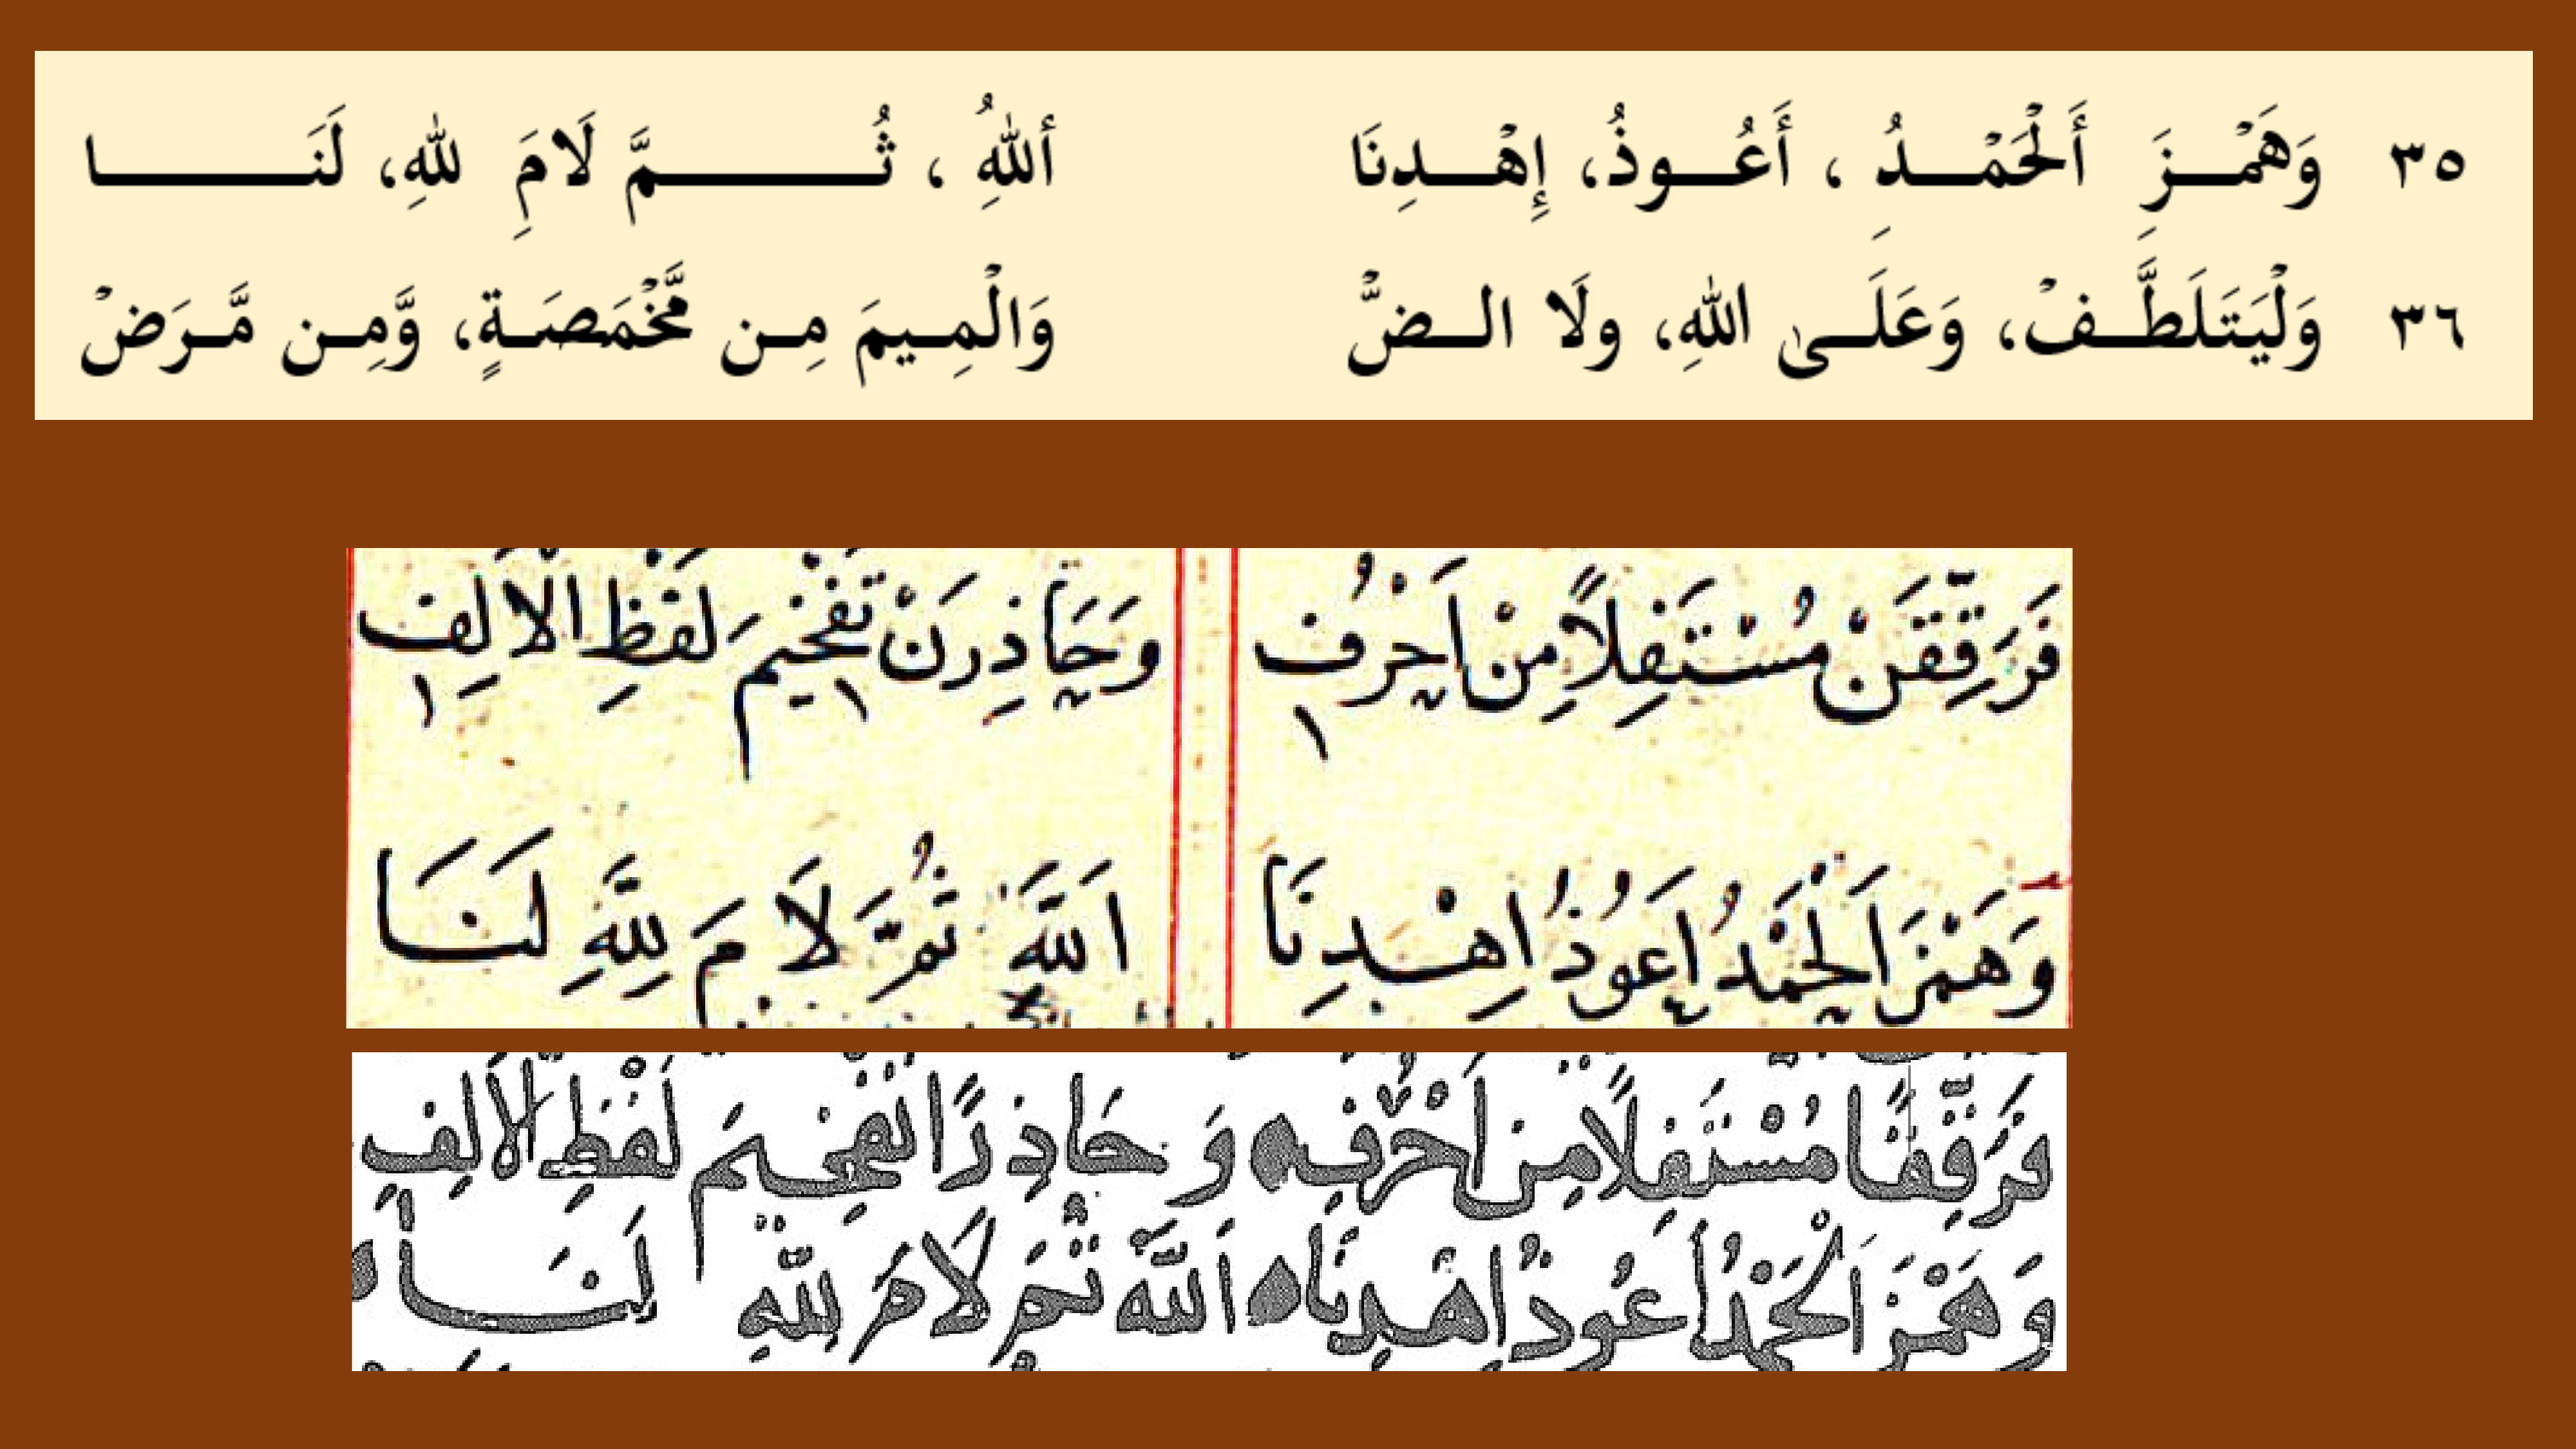 ٣٥ وَهَمْـزَِ أَلْحَمْـدُ ، أَعُـوذُ، إِهْـدِنَا أللهُِ ، ثُـمَّ لَامَِ للهِ، لَنَـا
٣٦ وَلْيَتَلَطَّـفْ، وَعَلَـى اللهِ، ولَا الـضّْ وَالْمِـيمَ مِـن مَّخْمَصَـةٍ، وَّمِـن مَّـرَضْ
فَرَقِّقَنْ مُسْتَفِلًا مِنْ اَحْرُفِ وَحَاذِرَنْ تَفْخِيمَ لَفْظِ الْاَلِفِ
وَهَمْزَ اَلْحَمْدُ اَعُوذُ اِهْدِنَا اَللَّهِ ثُمَّ لَامَ لِلَّهِ لَنَا
فَرَقِّقًا مُسْتَفِلًا مِنْ اَحْرُفِ وَحَاذِرًا تَفْخِيمَ لَفْظِ الْاَلِفِ
وَهَمْزَ اَلْحَمْدُ اَعُوذُ اِهْدِنَا اَللَّهُ ثُمَّ لَامَ لِلَّهِ لَنَا